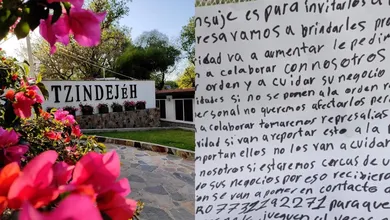 TZINDEJÉH
nsuje es para invitarlos a
resavamos a brindarles pro
idad va a aumentar le pedim
a colaborar con nosotros
orden y a cuidar su negocio
idades si no se ponen ala orden
personal no queremos afectarlos per
a colaborar tomaremos represalias
vidad si van a reportar esto a la
mportan ellos no los van a cuidar
nosotros si estaremos cercas de u
do sus negocios por eso recibiero
an se van a poner en contacto
RO 7731192271 para qu